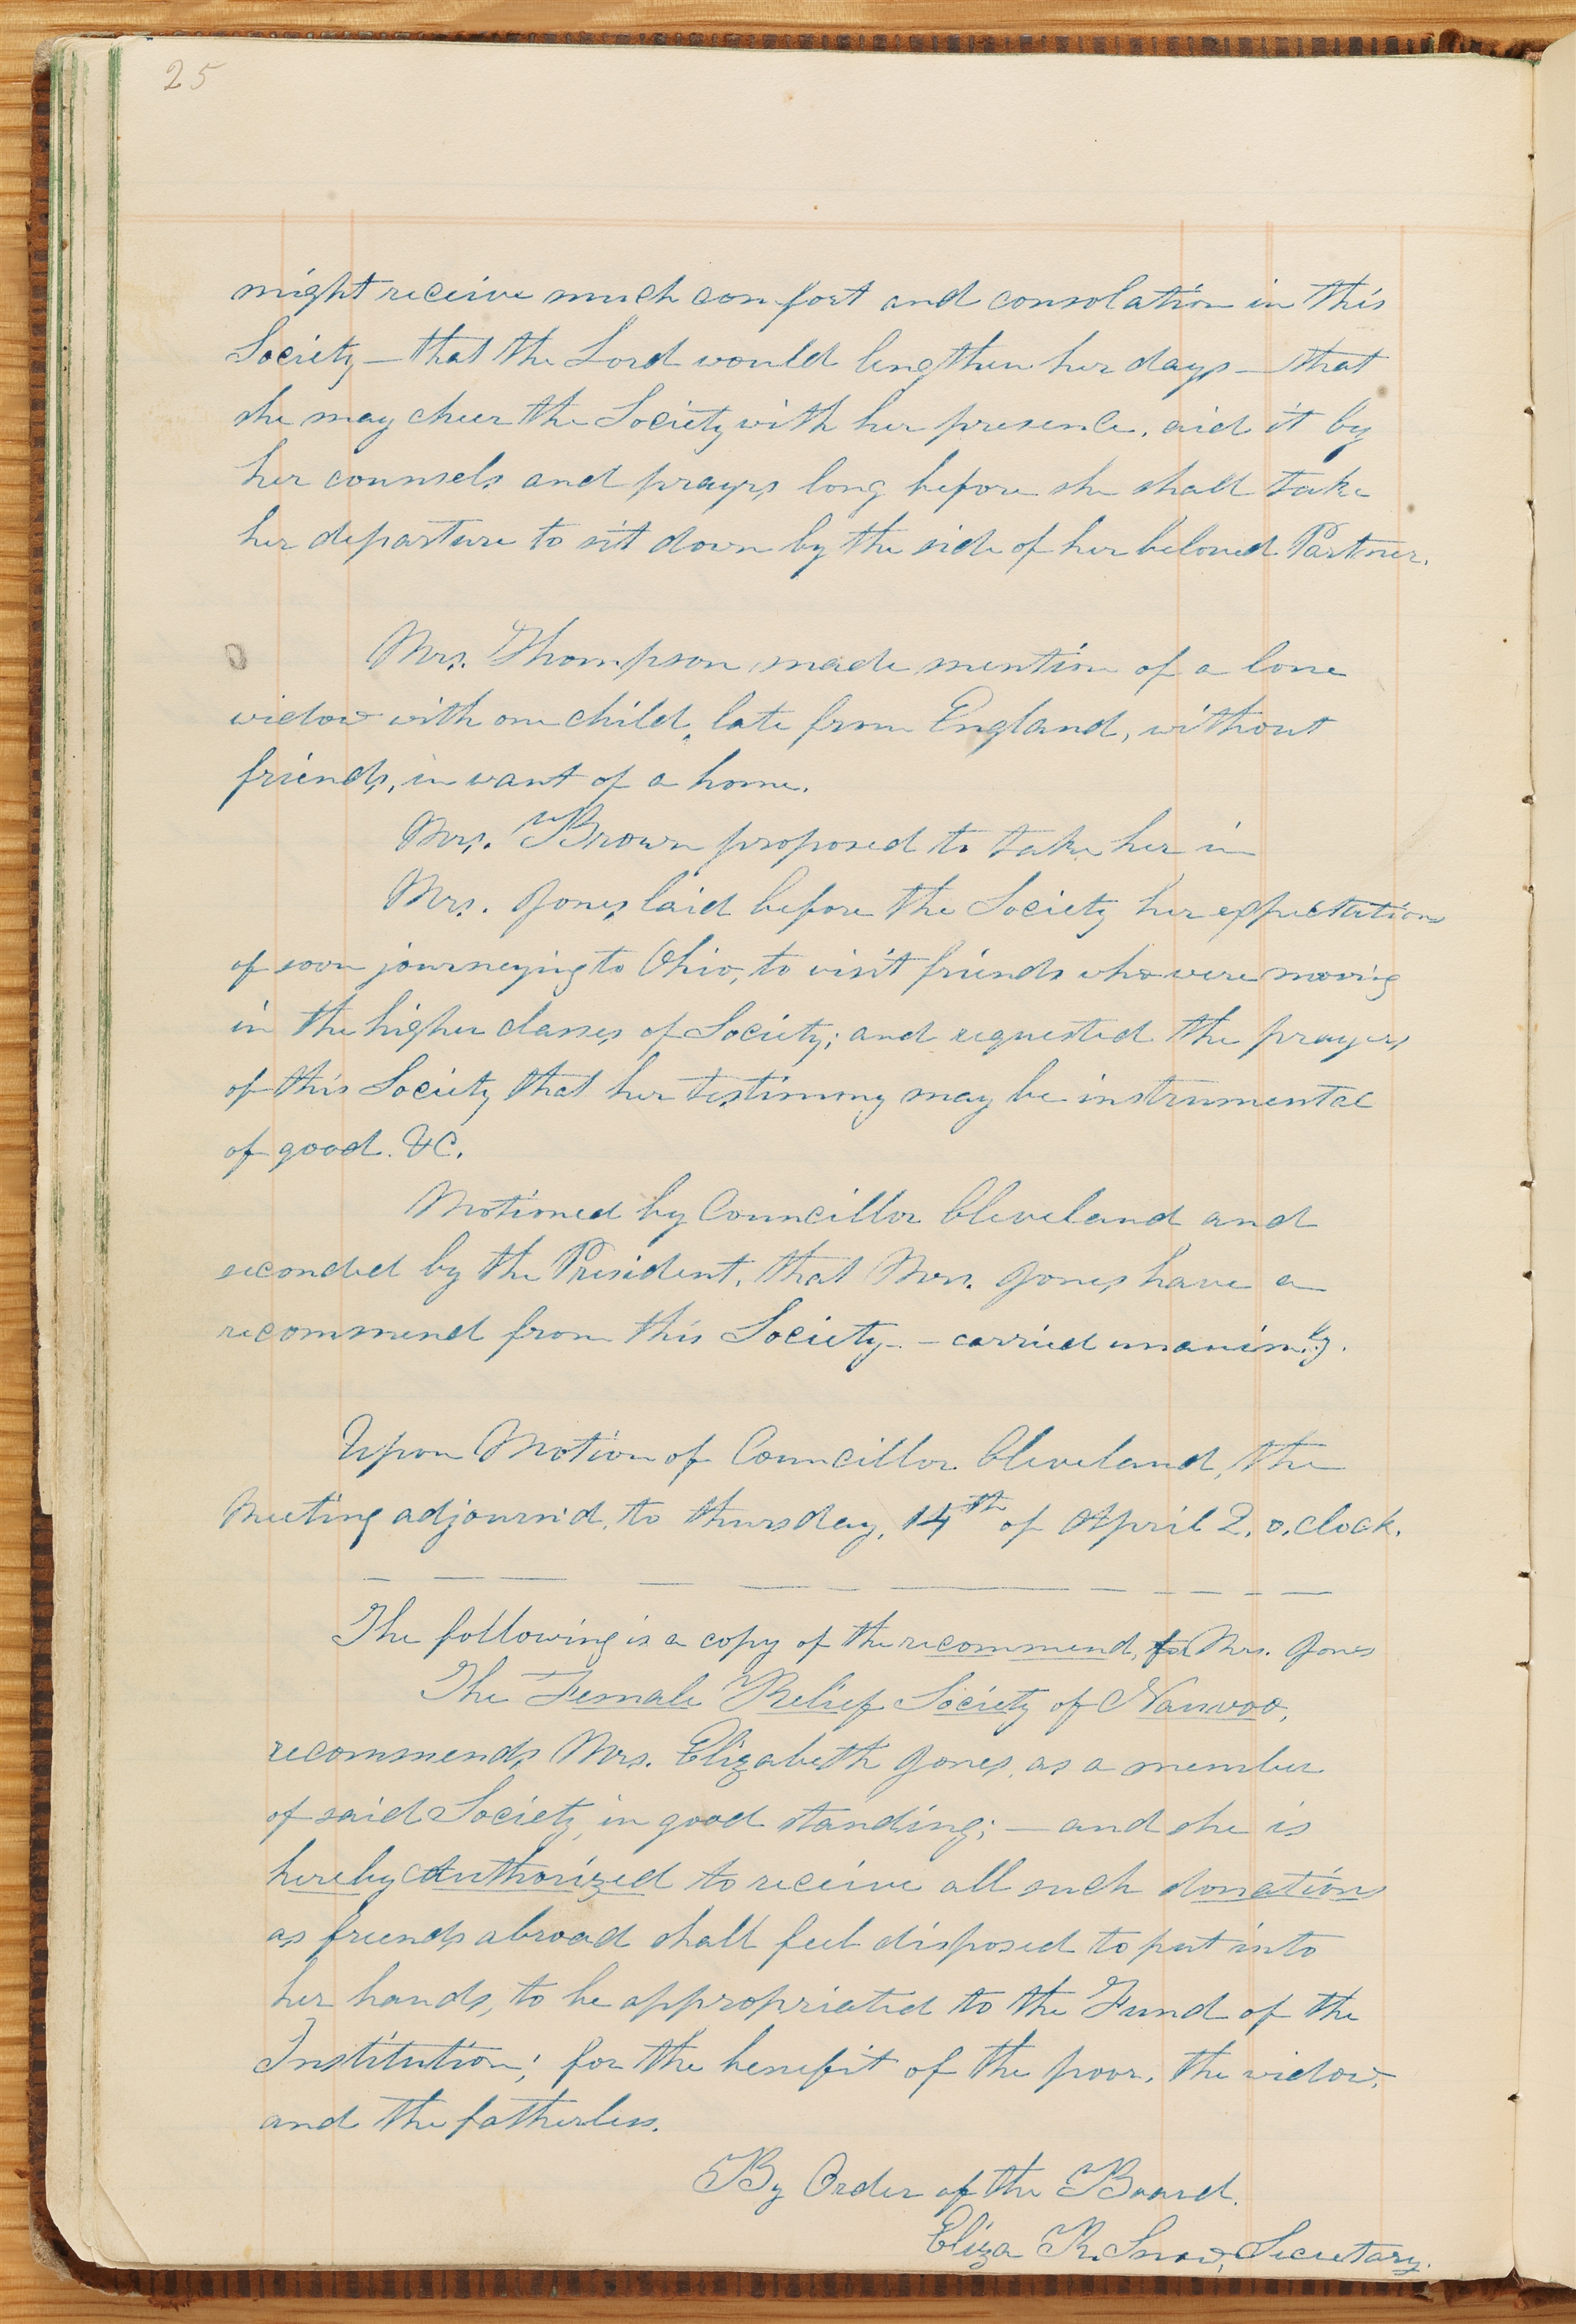 25
might receive much comfort and consolation in this
Society — that the Lord would lengthen her days — that
she may cheer the Society with her presence, aid it by
her counsels and prayrs long before she shall take
her departure to sit down by the side of her beloved Partner.
Mrs. Thompson made mention of a lone
widow with one child, late from England, without
friends, in want of a home.
Mrs. Brown proposed to take her in
Mrs. Jones laid before the Society her expectations
of soon journeying to Ohio, to visit friends who were moving
in the higher classes of Society; and requested the prayers
of this Society that her testimony may be instrumental
of good. &C.
Motioned by Councillor Cleveland and
seconded by the President, that Mrs. Jones have a
recommend from this Society. — carried unanim.ly.
Upon Motion of Councillor Cleveland, the
Meeting adjourn'd, to thursday, 14th of April 2. o.clock.
The following is a copy of the recommend, for Mrs. Jones
The Female Relief Society of Nauvoo,
recommends Mrs. Elizabeth Jones, as a member
of said Society, in good standing; — and she is
hereby Authorized to receive all such donations
as friends abroad shall feel disposed to put into
her hands, to be appropriated to the Fund of the
Institution; for the benefit of the poor, the widow,
and the fatherless.
By Order of the Board.
Eliza R. Snow, Secretary.